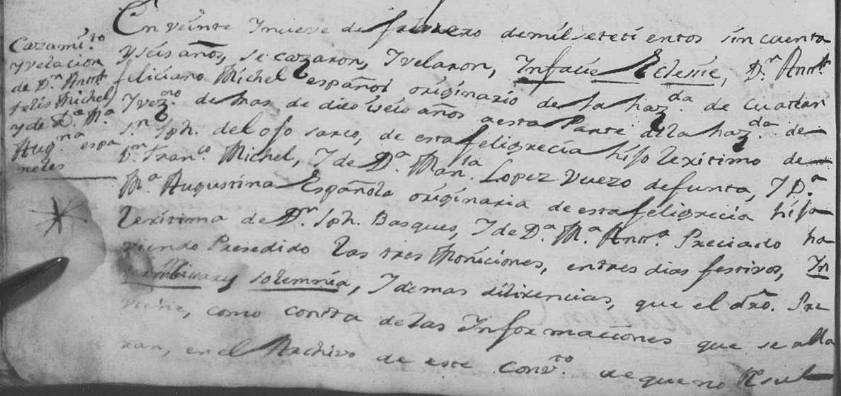 Cazami.to
y velacion
de D.n Ant.o
felis Michel
y de D.a M.a
Aug.na espa
noles
En veinte y nueve de febrero de mil setesi entos sin cuenta
y seis años, se cazaron, y velaron, Infacie Eclesie, D.n Ant.o
feliciano Michel español originario de la haz.da de Cuatan
y vez.no de mas de dies y seis años a esta Parte de la haz.da de
S.n Jph. del ojo sarco, de esta feligrecia hijo lexitimo de
D.n Fran.co Michel, y de D.a Man.la Lopez difunta, y D.a
M.a Augustina Española originaria de esta feligrecia hija
lexitima de D.n Jph. Basques, y de D.a M.a Ant.a Preciado ha
viendo Presedido las tres Moniciones, en tres dias festivos, In
solemnia, y demas dilixencias, que el dro. Pre
viene, como consta de las Informaciones que se alla
ran, en el Archivo de este Conv.to de que no Resul